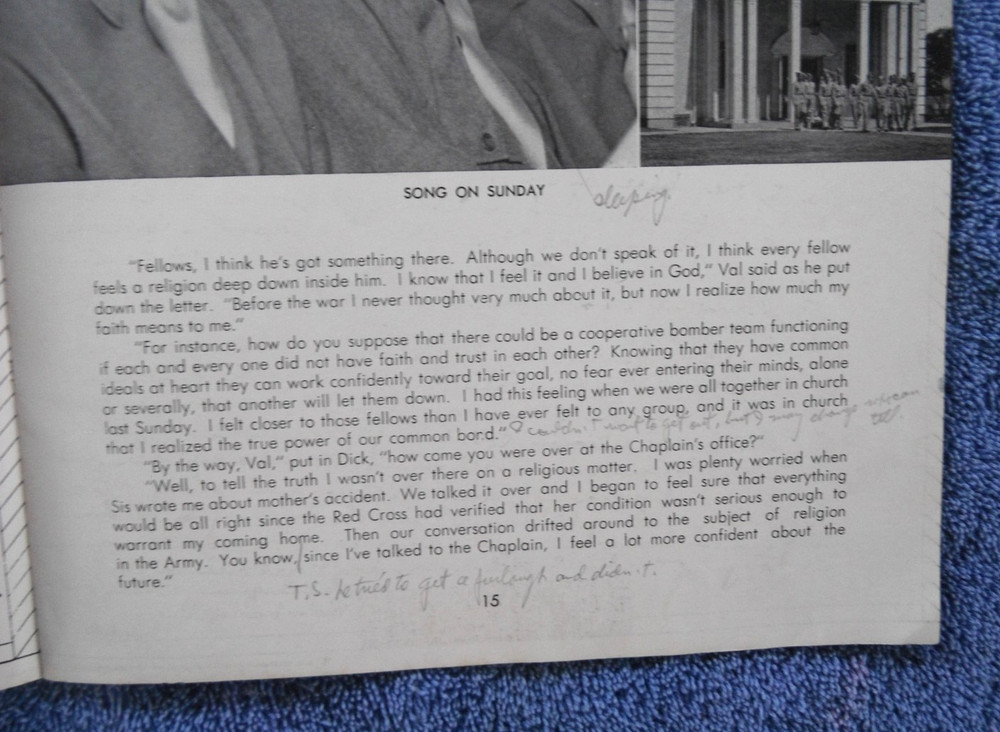 SONG ON SUNDAY
sleeping.
"Fellows, I think he's got something there. Although we don't speak of it, I think every fellow
feels a religion deep down inside him. I know that I feel it and I believe in God," Val said as he put
down the letter. "Before the war I never thought very much about it, but now I realize how much my
faith means to me."
"For instance, how do you suppose that there could be a cooperative bomber team functioning
if each and every one did not have faith and trust in each other? Knowing that they have common
ideals at heart they can work confidently toward their goal, no fear ever entering their minds, alone
or severally, that another will let them down. I had this feeling when we were all together in church
last Sunday. I felt closer to those fellows than I have ever felt to any group, and it was in church
that I realized the true power of our common bond."
couldn't wait to get out, but I may change
"By the way, Val," put in Dick, "how come you were over at the Chaplain's office?"
"Well, to tell the truth I wasn't over there on a religious matter. I was plenty worried when
Sis wrote me about mother's accident. We talked it over and I began to feel sure that everything
would be all right since the Red Cross had verified that her condition wasn't serious enough to
warrant my coming home. Then our conversation drifted around to the subject of religion
in the Army. You know, since I've talked to the Chaplain, I feel a lot more confident about the
future."
T.S. he tried to get a furlough and didn't.
15